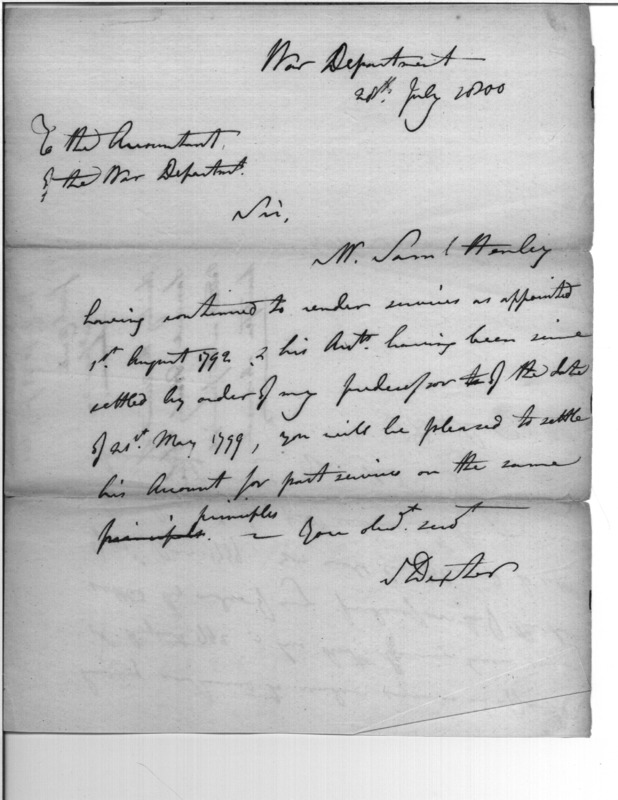 War Department
28th. July 1800
To the Accountant
of the War Departmt.
Sir,
Mr. Saml Henley
having continued to render services as appointed
1st. August 1792 & his Accts. having been since
settled by order of my predecessor to of the date
of 21st. May 1799, you will be pleased to settle
his Account for past services on the same
principles. principles — Your obedt. servt
S Dexter